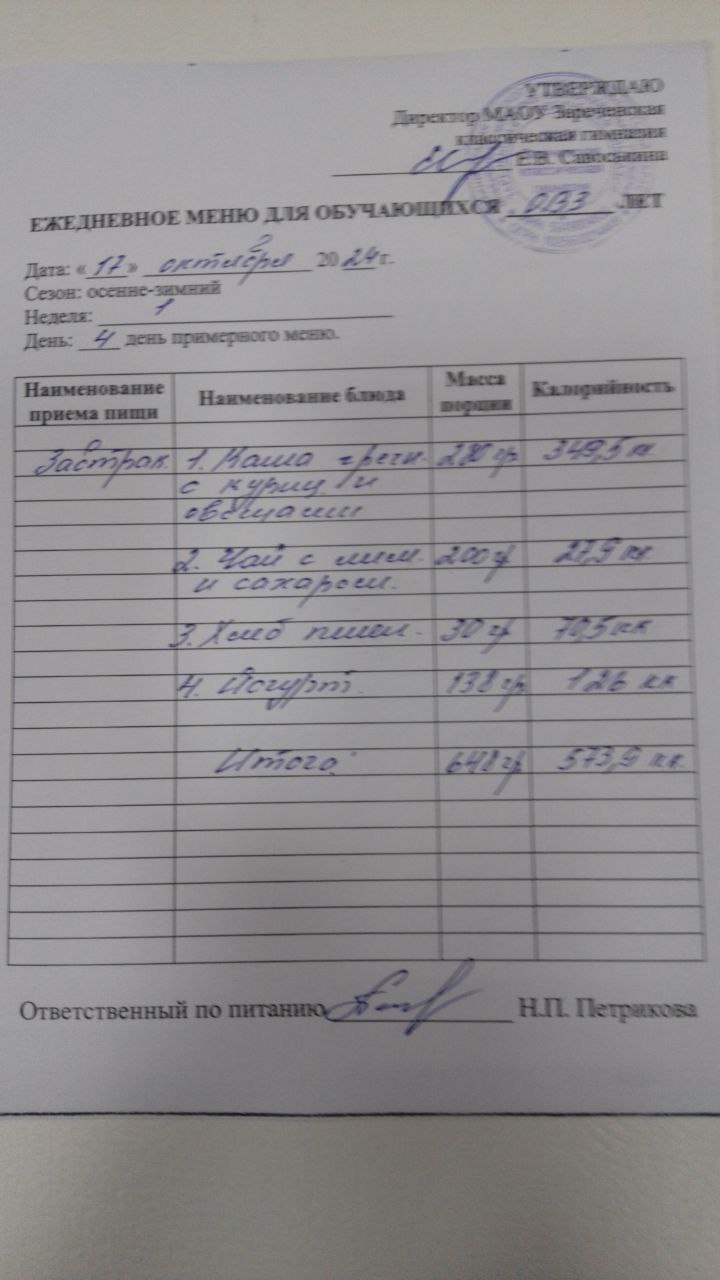 УТВЕРЖДАЮ
Директор МАОУ Зареченская
классическая гимназия
Е.В. Савоськина
ЕЖЕДНЕВНОЕ МЕНЮ ДЛЯ ОБУЧАЮЩИХСЯ ОВЗ ЛЕТ
Дата: «17» октября 2024 г.
Сезон: осенне-зимний
Неделя: 1
День: 4 день примерного меню.
Наименование приема пищи Наименование блюда Масса порции Калорийность
Завтрак 1. Каша гречн. 280 гр 349,5 кк
с куриц. и
овощами
2. Чай с лим. 200 гр 27,9 кк
и сахаром.
3. Хлеб пшен. 30 гр 70,5 кк
4. Йогурт. 138 гр 126 кк
Итого: 648 гр 573,9 кк
Ответственный по питанию Н.П. Петрикова